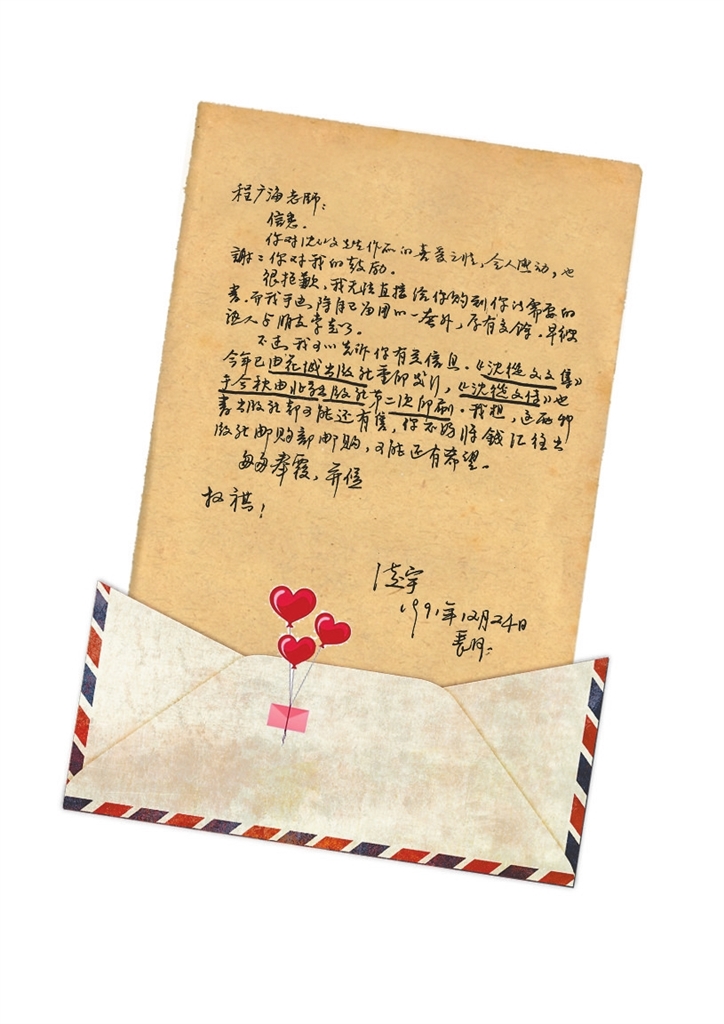 程广海老师：
信悉。
你对沈从文先生作品的喜爱之情，令人感动，也
谢谢你对我的鼓励。
很抱歉，我无法直接给你购到你所需要的
书。而我手边除自己备用的一套外，存有多余，早被
熟人与朋友拿走了。
不过，我可以告诉你有关信息。《沈从文文集》
今年已由花城出版社重印发行，《沈从文传》也
于今秋由北京出版社第二次印刷。我想，这两种
书出版社都可能还有售，你不妨将钱汇往出
版社邮购部邮购，可能还有希望。
匆匆奉覆，并候
教祺！
凌宇
1991年12月24日
长沙